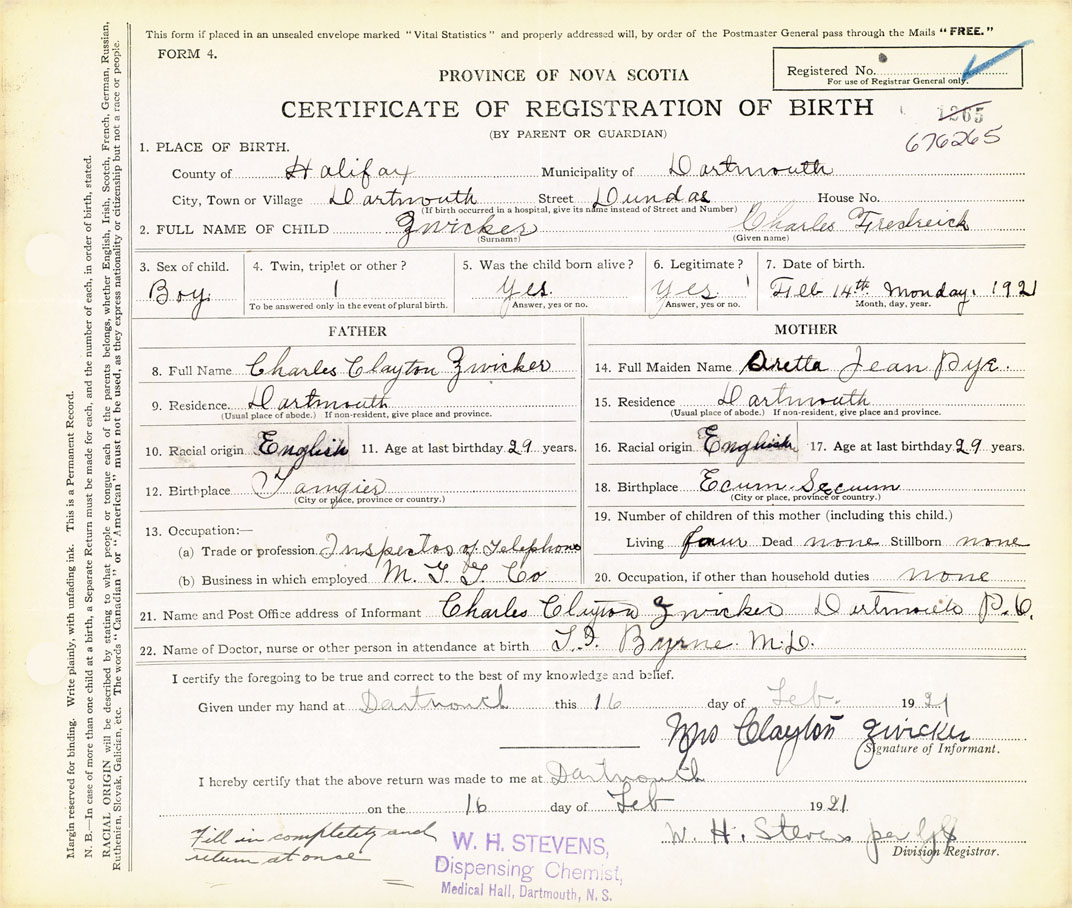 This form if placed in an unsealed envelope marked "Vital Statistics" and properly addressed will, by order of the Postmaster General pass through the Mails "FREE."
FORM 4.
Registered No.
For use of Registrar General only.
PROVINCE OF NOVA SCOTIA
CERTIFICATE OF REGISTRATION OF BIRTH
1265
(BY PARENT OR GUARDIAN)
676265
1. PLACE OF BIRTH.
County of Halifax Municipality of Dartmouth
City, Town or Village Dartmouth Street Dundas House No.
(If birth occurred in a hospital, give its name instead of Street and Number)
2. FULL NAME OF CHILD Zwicker Charles Fredreick
(Surname) (Given name)
3. Sex of child. 4. Twin, triplet or other? 5. Was the child born alive? 6. Legitimate? 7. Date of birth.
Boy. 1 Yes. Yes. Feb 14th Monday. 1921
To be answered only in the event of plural birth. Answer, yes or no. Answer, yes or no. Month, day, year.
FATHER
8. Full Name Charles Clayton Zwicker
9. Residence. Dartmouth
(Usual place of abode.) If non-resident, give place and province.
10. Racial origin English 11. Age at last birthday 29 years.
12. Birthplace Tangier
(City or place, province or country.)
13. Occupation:—
(a) Trade or profession Inspector of Telephone
(b) Business in which employed M. T. T. Co
MOTHER
14. Full Maiden Name Aretta Jean Pye.
15. Residence Dartmouth
(Usual place of abode.) If non-resident, give place and province.
16. Racial origin English 17. Age at last birthday 29 years.
18. Birthplace Ecum Secum
(City or place, province or country.)
19. Number of children of this mother (including this child.)
Living four Dead none Stillborn none
20. Occupation, if other than household duties none
21. Name and Post Office address of Informant Charles Clayton Zwicker Dartmouth P.O.
22. Name of Doctor, nurse or other person in attendance at birth Byrne M.D.
I certify the foregoing to be true and correct to the best of my knowledge and belief.
Given under my hand at Dartmouth this 16 day of Feb. 1921
Mrs Clayton Zwicker
Signature of Informant.
I hereby certify that the above return was made to me at Dartmouth
on the 16 day of Feb 1921
W. H. Stevens per
Division Registrar.
Fill in completely and
return at once
W. H. STEVENS,
Dispensing Chemist,
Medical Hall, Dartmouth, N. S.
Margin reserved for binding. Write plainly, with unfading ink. This is a Permanent Record.
N. B.—In case of more than one child at a birth, a Separate Return must be made for each, and the number of each, in order of birth, stated.
RACIAL ORIGIN will be described by stating to what people or tongue each of the parents belongs, whether English, Irish, Scotch, French, German, Russian,
Ruthenian, Slovak, Galician, etc. The words "Canadian" or "American" must not be used, as they express nationality or citizenship but not a race or people.